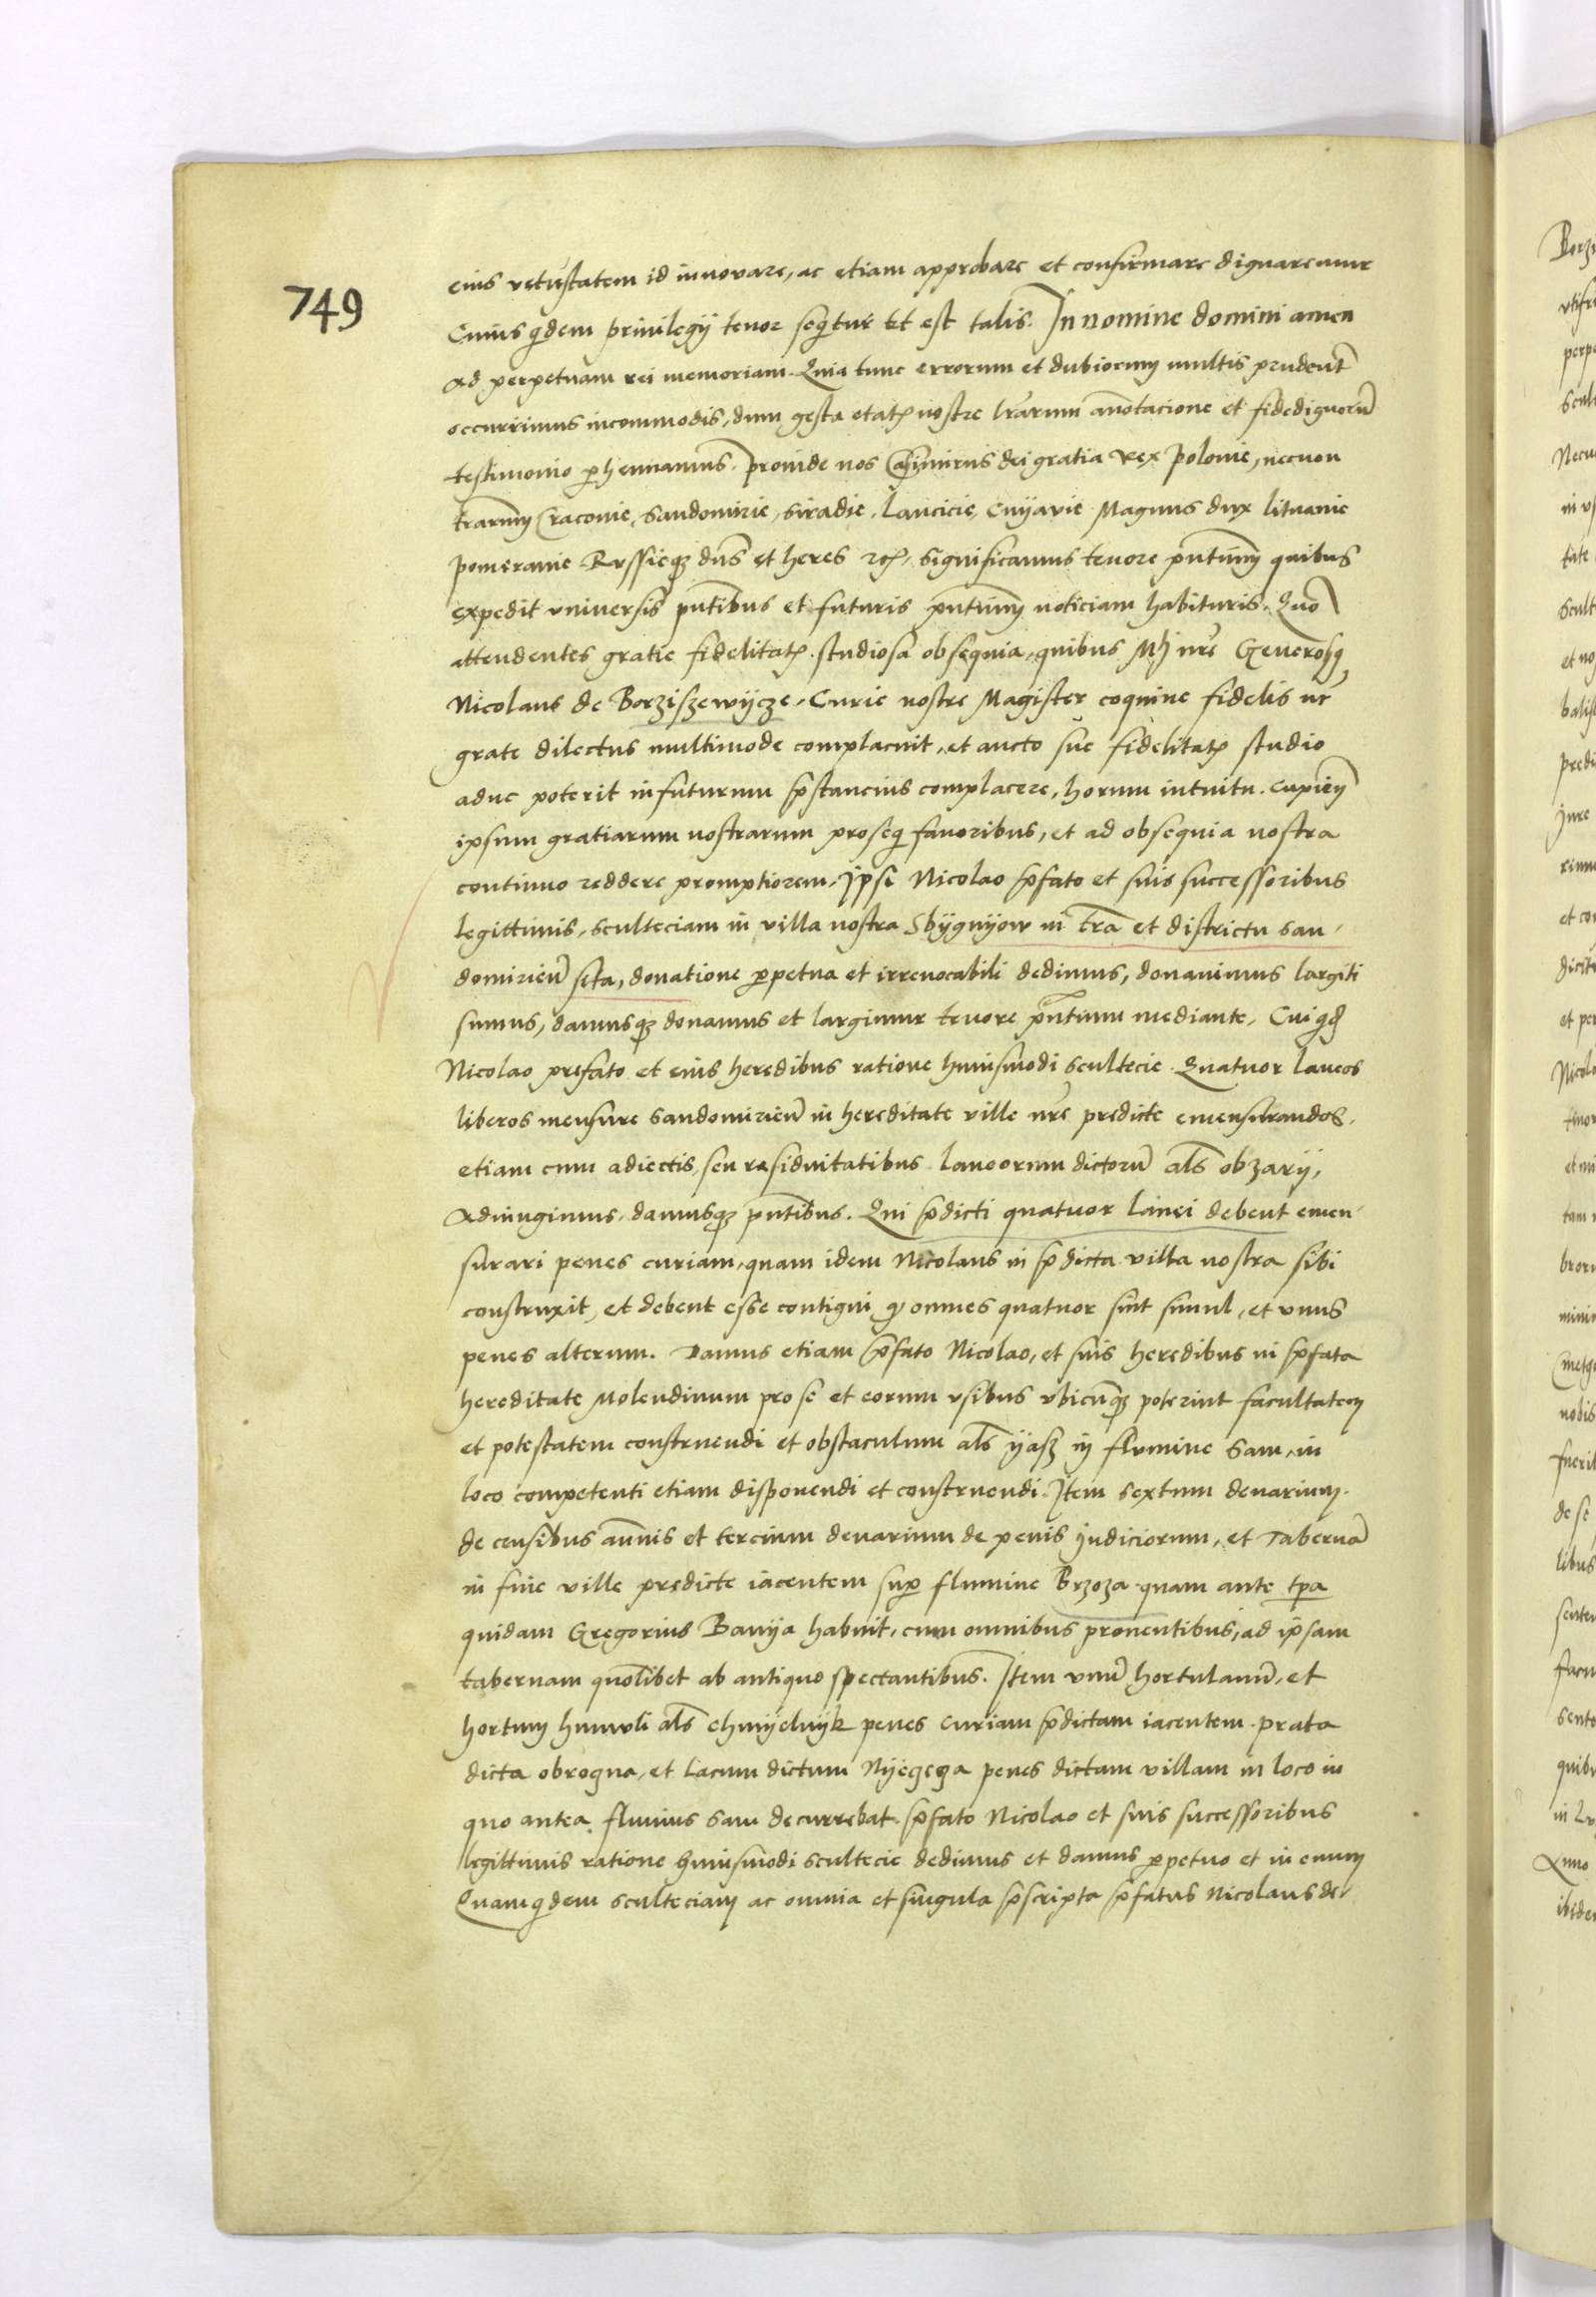 749
eius vetustatem id innovare, ac etiam approbare et confirmare dignaremur
Cuius qdem privilegij tenor seqtur et est talis. In nomine domini amen
Ad perpetuam rei memoriam. Quia tunc errorum et dubiorum multis prudent
occurrimus incommodis, dum gesta etatis nostre lrarum anotacione et fidedignoru
testimonio phennamus. proinde nos Casimirus dei gratia Rex Polonie, necnon
trarum Craconie, Sandomirie, Siradie, Lancicie, Cuyavie Magnus dux lituanie
pomeranie Russieq dns et heres etc. significamus tenore pntium quibus
expedit vniversis pntibus et futuris pntium noticiam habituris. Quo
attendentes gratie fidelitatis studiosa obsequia, quibus nre Generosus
Nicolaus de Borziszewycze, Curie nostre Magister coquine fidelis nr
grate dilectus multimode complacuit, et aucto sue fidelitatis studio
aduc poterit infuturum pstancius complacere, horum intuitu. cupien
ipsum gratiarum nostrarum proseq favoribus, et ad obsequia nostra
continuo reddere promptiorem, Ipsi Nicolao pfato et suis successoribus
legittimis, sculteciam in villa nostra Sbygnyow in tra et districtu san
domirien sita, donatione ppetua et irrevocabili dedimus, donavimus largiti
sumus, damusq donamus et largimur tenore pntium mediante, Cui qd
Nicolao prefato et eius heredibus ratione huiusmodi scultecie Quatuor laneos
liberos mensure Sandomirien in hereditate ville nre predicte emensurandos,
etiam cum adiectis, seu residuitatibus laneorum dictoru als obzary,
Adiungimus, damusq pntibus. Qui pdicti quatuor lanei debent emen
surari penes curiam, quam idem Nicolaus in pdicta villa nostra sibi
construxit, et debent esse contigui q omnes quatuor sint simul, et vnus
penes alterum. Damus etiam pfato Nicolao, et suis heredibus in pfata
hereditate Molendinum pro se et eorum vsibus vbicumq poterint facultatem
et potestatem construendi et obstaculum als yasz in flumine San, in
loco competenti etiam disponendi et construendi. Item sextum denarium
de censibus annuis et tercium denarium de penis iudiciorum, et Taberna
in fine ville predicte iacentem sup flumine Brzoza quam ante tpa
quidam Gregorius Banya habuit, cum omnibus pronentibus, ad ipsam
tabernam quolibet ab antiquo spectantibus. Item vnu hortulanu, et
hortum humuli als chmyelnyk penes curiam pdictam iacentem. prata
dicta obrogna, et lacum dictum Nyegeza penes dictam villam in loco in
quo antea fluvius San decurrebat. pfato Nicolao et suis successoribus
legittimis ratione huiusmodi scultecie dedimus et damus ppetuo et in euum
Quamqdem sculteciam ac omnia et singula pscripta pfatus Nicolaus de